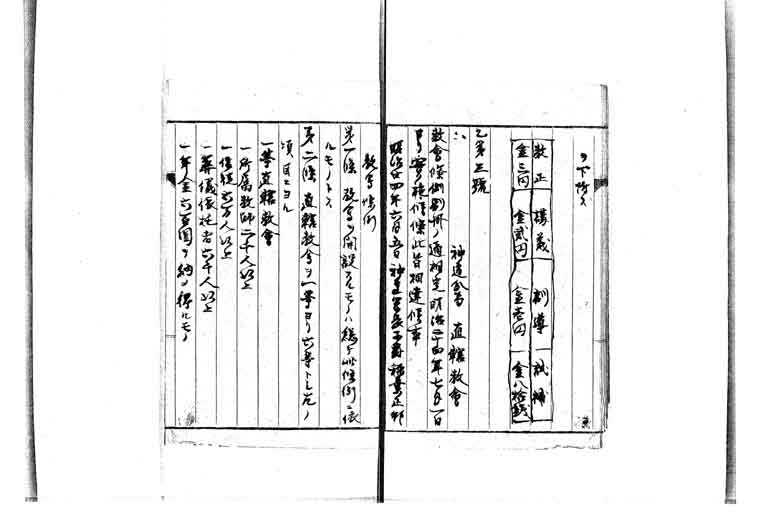 ヲ下附ス
教正 講義 訓導 試補
金三円 金貳円 金壱円 金八拾銭
乙第三號
神道分局 直轄教會
教會條例別冊ノ通相定明治二十四年七月一日
ヨリ實施候條此旨相達候事
明治廿四年六月五日 神道管長子爵稲葉正邦
教會條例
第一條 教會ヲ開設スルモノハ総テ此條例ニ依
ルモノトス
第二條 直轄教會ヲ一等ヨリ六等トシ左ノ
項目ニヨル
一等直轄教會
一 所属教師二千人以上
一 信徒六万人以上
一 葬儀依托者六千人以上
一 年金六百圓ヲ納メ得ルモノ